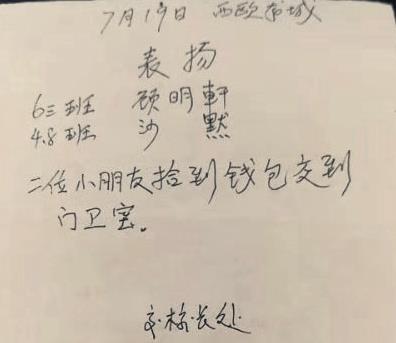 7月19日 西欧花城
表扬
六三班 顾明軒
4.8班 沙 默
二位小朋友拾到钱包交到
门卫室。
交.校.长.处.